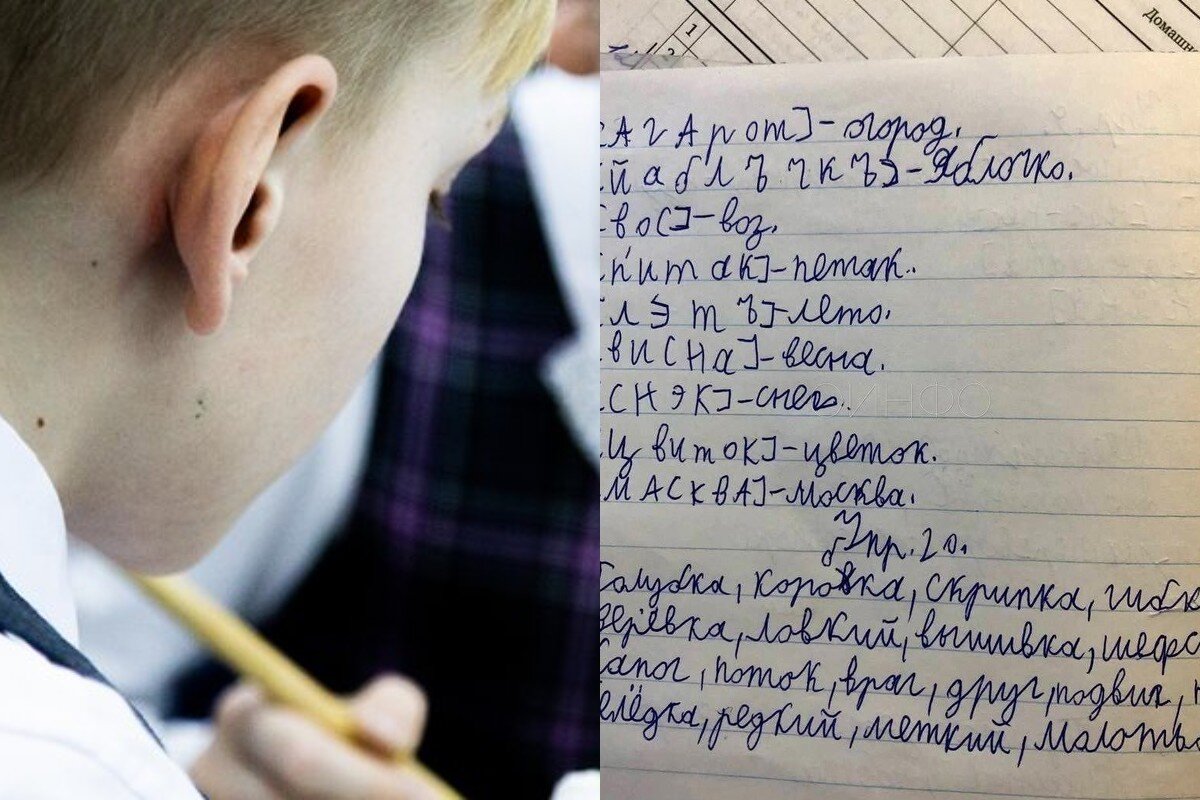 Домашн
1
2
[АгАрот]-огород.
[йаблъчкъ]-Яблочко.
[вос]-воз.
[п'итак]-петак.
[лэтъ]-лето.
[виСНа]-весна.
[СНЭК]-снег.
[цвиток]-цветок.
[МАСКВА]-Москва.
Упр. 20.
Голубка, коровка, скрипка, гибк
верёвка, ловкий, вышивка, шефс
Сапог, поток, враг, друг, подвиг, н
елёдка, редкий, меткий, Молоть